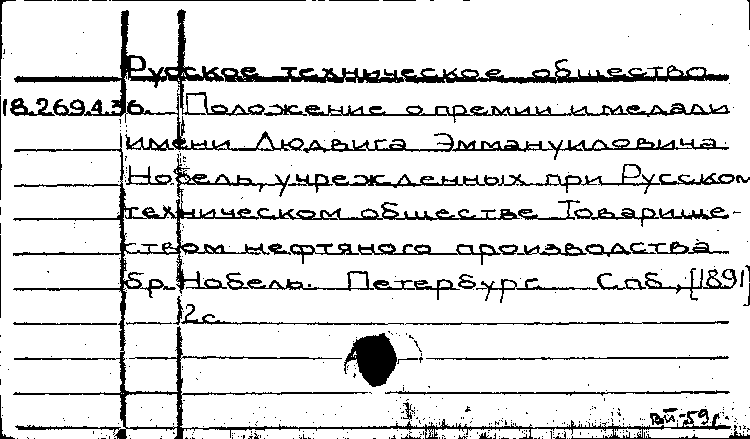 Русское техническое общество
18.269.4.36. Положение о премии и медали
имени Людвига Эммануиловича
Нобель, учрежденных при Русском
техническом обществе Товарище-
ством нефтяного производства
бр. Нобель. Петербург. Спб., [1891]
2 с.